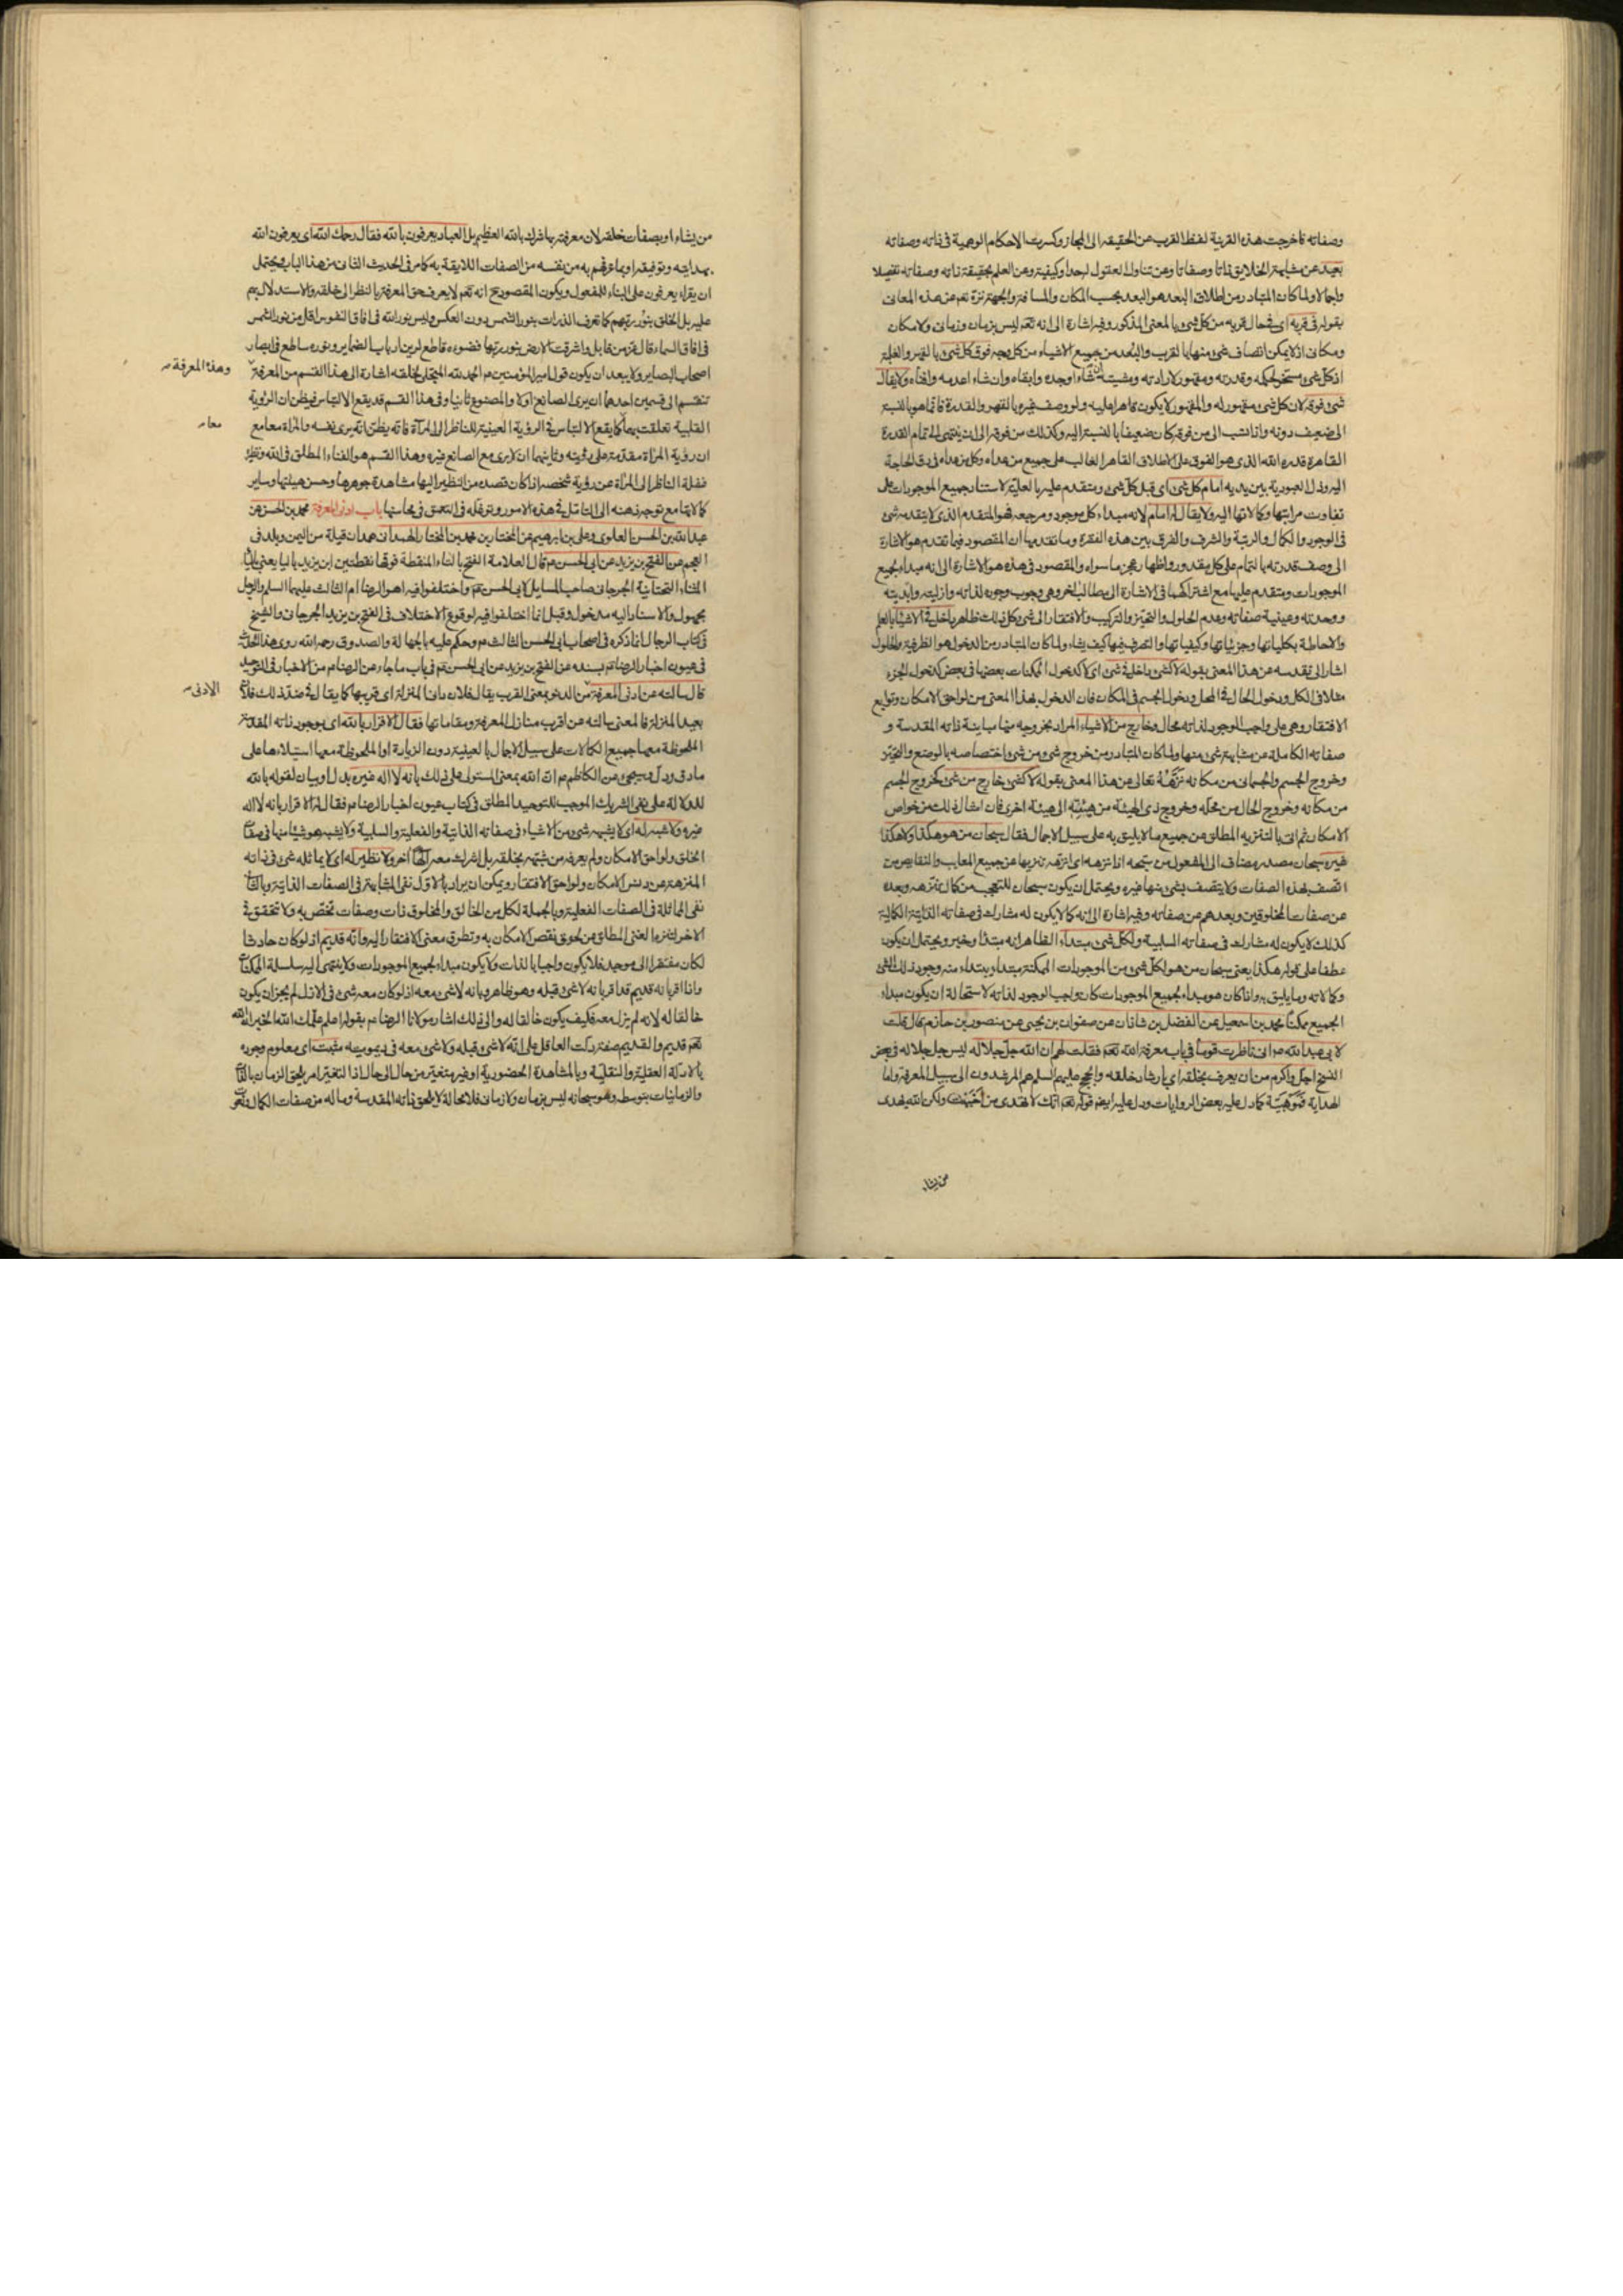 وصفاته فاخرجت هذه القرينة لفظ القرب عن الحقيقه الى المجاز وكسرت الاحكام الوهمية فى ذاته وصفاته
بعيد عن مشابهة الخلايق ذاتا وصفاتا وعن تناول العقول لحدا وكيفيته وعن العلم بحقيقة ذاته وصفاته تفصيلا
واجمالا ولما كان المتبادر من اطلاق البعد هو البعد بحسب المكان والمسافة والجهة نزهه تعم عن هذه المعانى
بقوله فى قربه اى فى حال قربه من كل شئ بالمعنى المذكور وفيه اشارة الى انه تعم ليس بزمان وزمانى ولا مكان
ومكانى اذ لا يمكن اتصاف شئ منها بالقرب والبعد من جميع الاشياء من كل وجه فوق كل شئ بالقهر والغلبة
اذ كل شئ مسخر لحكمه وقدرته ومقهور لارادته ومشيته ان شاء اوجده وابقاه وان شاء اعدمه وافناه ولا يقال
شئ فوقه لان كل شئ مقهور له والمقهور لا يكون قاهرا عليه ولو وصف غيره بالقهر والقدرة فانما هو بالنسبة
الى ضعيف دونه واذا نسب الى من فوقه كان ضعيفا بالنسبة اليه وكذلك من فوقه الى ان ينتهى الى تمام القدرة
القاهرة قدرة الله الذى هو الفوق على الاطلاق القاهر الغالب على جميع من عداه وكل من عداه فى رق الحاجة
اليه وذل العبودية بين يديه امام كل شئ اى قبل كل شئ ومتقدم عليه بالعلية لاستناد جميع الموجودات على
تفاوت مراتبها وكمالاتها اليه ولا يقال له امام لانه مبداء كل موجود ومرجعه فهو المتقدم الذى لا يتقدمه شئ
فى الوجود والكمال والرتبة والشرف والفرق بين هذه الفقرة وما تقدمها ان المقصود فيما تقدم هو الاشارة
الى وصف قدرته بالتمام على كل مقدور واظهار عجز ما سواه والمقصود فى هذه هو الاشارة الى انه مبداء لجميع
الموجودات ومتقدم عليها مع اشتراكهما فى الاشارة الى مطالب اخر وهى وجوب وجوده لذاته وازليته وابديته
ووحدته وعينية صفاته وعدم الحلول والتحيز والتركيب والافتقار الى شئ وكل ذلك ظاهر داخل فى الاشياء بالعلم
والاحاطة بكلياتها وجزئياتها وكيفياتها والتصرف فيها كيف يشاء ولما كان المتبادر من الدخول هو الظرفية والحلول
اشار الى تقدسه عن هذا المعنى بقوله لا كشئ داخل فى شئ اى لا كدخول الممكنات بعضها فى بعض كدخول الجزء
مثلا فى الكل ودخول الحال فى المحل ودخول الجسم فى المكان فان الدخول بهذا المعنى من لواحق الامكان وتوابع
الافتقار وهى على واجب الوجود لذاته محال وخارج من الاشياء المراد بخروجه منها مباينة ذاته المقدسة و
صفاته الكاملة عن مشابهة شئ منها ولما كان المتبادر من خروج شئ من شئ اختصاصه بالوضع والتحيز
وخروج الجسم والجسمانى من مكانه نزهه تعالى عن هذا المعنى بقوله لا كشئ خارج من شئ كخروج الجسم
من مكانه وخروج الحال من محله وخروج ذى الهيئة من هيئته الى هيئة اخرى فان امثال ذلك من خواص
الامكان ثم اتى بالتنزيه المطلق عن جميع ما لا يليق به على سبيل الاجمال فقال سبحان من هو هكذا ولا هكذا
غيره سبحان مصدر مضاف الى المفعول من سبحه اذا نزهه اى انزهه تنزيها عن جميع المعايب والنقايص من
اتصف بهذه الصفات ولا يتصف بشئ منها غيره ويحتمل ان يكون سبحان للتعجب من كمال تنزهه وبعده
عن صفات المخلوقين وبعدهم عن صفاته وفيه اشارة الى انه كما لا يكون له مشارك فى صفاته الذاتية الكمالية
كذلك لا يكون له مشارك فى صفاته السلبية ولكل شئ مبتداء الظاهر انه مبتدأ وخبر ويحتمل ان يكون
عطفا على قوله هكذا يعنى سبحان من هو لكل شئ من الموجودات الممكنة مبتداء ويبتداء منه وجود ذلك الشئ
وكمالاته وما يليق به واذا كان هو مبداء لجميع الموجودات كان واجب الوجود لذاته لاستحالة ان يكون مبداء
الجميع ممكنا محمد بن اسمعيل عن الفضل بن شاذان عن صفوان بن يحيى عن منصور بن حازم قال قلت
لابى عبد الله عم انى ناظرت قوما فى باب معرفة الله تعم فقلت لهم ان الله جل جلاله ليس جل جلاله فى بعض
النسخ اجل واكرم من ان يعرف بخلقه اى بارشاد خلقه والحجج عليهم السلم هم المرشدون الى سبيل المعرفة واما
الهداية فموهبية كما دل عليه بعض الروايات ودل عليه ايضم قوله تعم انك لا تهدى من احببت ولكن الله يهدى
من يشاء
من يشاء او بصفات خلقه لان معرفته بها شرك بالله العظيم بل العباد يعرفون بالله فقال رحمك الله اى يعرفون الله
بهدايته وتوفيقه او بما عرفهم به من نفسه من الصفات اللايقة به كما مر فى الحديث الثانى من هذا الباب ويحتمل
ان يقراء يعرفون على البناء للمفعول ويكون المقصود ح انه تعم لا يعرف حق المعرفة بالنظر الى خلقه والاستدلال بهم
عليه بل الخلق بنور ربهم كما تعرف الذرات بنور الشمس دون العكس وليس نور الله فى افاق النفوس اقل من نور الشمس
فى افاق السماء قال عز من قايل واشرقت الارض بنور ربها فضوءه قاطع لرين ارباب الضماير ونوره ساطع فى ابصار
اصحاب البصاير ولا يبعد ان يكون قول امير المؤمنين عم الحمد لله المتجلى لخلقه اشارة الى هذا القسم من المعرفة
وهذه المعرفة
تنقسم الى قسمين احدهما ان يرى الصانع اولا والمصنوع ثانيا وفى هذا القسم قد يقع الالتباس فيظن ان الرؤية
القلبية تعلقت بهما كما يقع الالتباس فى الرؤية العينية للناظر الى المرآة فانه يظن انه يرى نفسه والمرآة معا مع
معا
ان رؤية المرآة مقدمة على رؤيته وثانيهما ان لا يرى مع الصانع غيره وهذا القسم هو الفناء المطلق فى الله ونظيره
غفلة الناظر الى المرآة عن رؤية شخصه اذا كان قصده من النظر اليها مشاهدة جوهرها وحسن هيئتها وساير
كمالاتها مع توجه ذهنه الى التامل فى هذه الامور وتوغله فى التعمق فى محاسنها باب ادنى المعرفة محمد بن الحسن عن
عبد الله بن الحسن العلوى وعلى بن ابرهيم عن المختار بن محمد بن المختار الهمدانى همدان قبيلة من اليمن وبلد فى
العجم عن الفتح بن يزيد عن ابى الحسن عم قال العلامة الفتح بالتاء المنقطة فوقها نقطتين ابن يزيد باليا يعنى باليا
المثناة التحتانية الجرجانى صاحب المسايل لابى الحسن عم واختلفوا فيه اهو الرضا ام الثالث عليهما السلم والرجل
مجهول والاسناد اليه مدخول وقيل انما اختلفوا فيه لوقوع الاختلاف فى الفتح بن يزيد الجرجانى والشيخ
فى كتاب الرجال انما ذكره فى اصحاب ابى الحسن الثالث عم وحكم عليه بالجهالة والصدوق رحمه الله روى هذا الحديث
فى عيون اخبار الرضا عم بسنده عن الفتح بن يزيد عن ابى الحسن عم فى باب ما جاء عن الرضا عم من الاخبار فى التوحيد
قال سالته عن ادنى المعرفة من الدنو بمعنى القرب يقال فلان دانى المنزلة اى قريبها كما يقال فى ضد ذلك فلان
الادنى
بعيد المنزلة فالمعنى سالته عن اقرب منازل المعرفة ومقاماتها فقال الاقرار بالله اى بوجود ذاته المقدسة
الملحوظة معها جميع الكمالات على سبيل الاجمال بالعينية دون الزيادة او الملحوظة معها استيلاءها على
ما دق وجل ويجئ عن الكاظم عم ان الله بمعنى المستولى على ذلك بانه لا اله غيره بدل او بيان لقوله بالله
للدلالة على نفى الشريك الموجب للتوحيد المطلق فى كتاب عيون اخبار الرضا عم فقال الاقرار بانه لا اله
غيره ولا شبه له اى لا يشبهه شئ من الاشياء فى صفاته الذاتية والفعلية والسلبية ولا يشبه هو شيئا منها فى صفات
الخلق ولواحق الامكان ولم يعرفه من شبهه بخلقه بل اشرك معه الها آخر ولا نظير له اى لا يماثله شئ فى ذاته
المنزهة عن دنس الامكان ولواحق الافتقار ويمكن ان يراد بالاول نفى المشابهة فى الصفات الذاتية وبالثانى
نفى المماثلة فى الصفات الفعلية وبالجملة لكل من الخالق والمخلوق ذات وصفات تختص به ولا تتحقق فى
الاخر لتنزه الغنى المطلق عن لحوق نقص الامكان به وتطرق معنى الافتقار اليه وانه قديم اذ لو كان حادثا
لكان مفتقرا الى موجد فلا يكون واجبا بالذات ولا يكون مبداء لجميع الموجودات ولا ينتهى اليه سلسلة الممكنات
واذا اقر بانه قديم فقد اقر بانه لا شئ قبله وهو ظاهر وبانه لا شئ معه اذ لو كان معه شئ فى الازل لم يجز ان يكون
خالقا له لانه لم يزل معه فكيف يكون خالقا له والى ذلك اشار مولانا الرضا عم بقوله اعلم علمك الله الخير ان الله
تعم قديم والقديم صفة دلت العاقل على انه لا شئ قبله ولا شئ معه فى ديموميته مثبت اى معلوم وجوده
بالادلة العقلية والنقلية وبالمشاهدة الحضورية او غير متغير من حال الى حال اذ التغير امر يلحق الزمان بالذات
والزمانيات بتوسطه وهو سبحانه ليس بزمان ولا زمانى فلا محالة لا يلحق ذاته المقدسة وما له من صفات الكمال